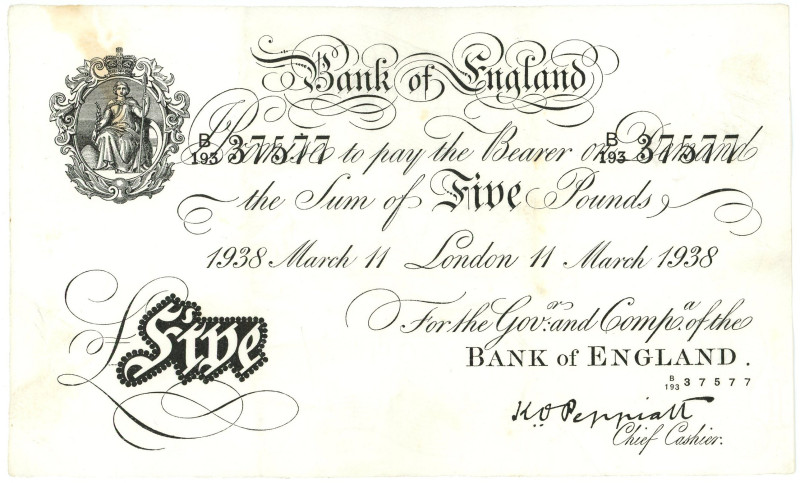 Bank of England
B/193 37577 to pay the Bearer on Demand B/193 37577
the Sum of Five Pounds
1938 March 11 London 11 March 1938
£Five
For the Govr. and Compa. of the
BANK of ENGLAND.
B/193 37577
K.O. Peppiatt
Chief Cashier.